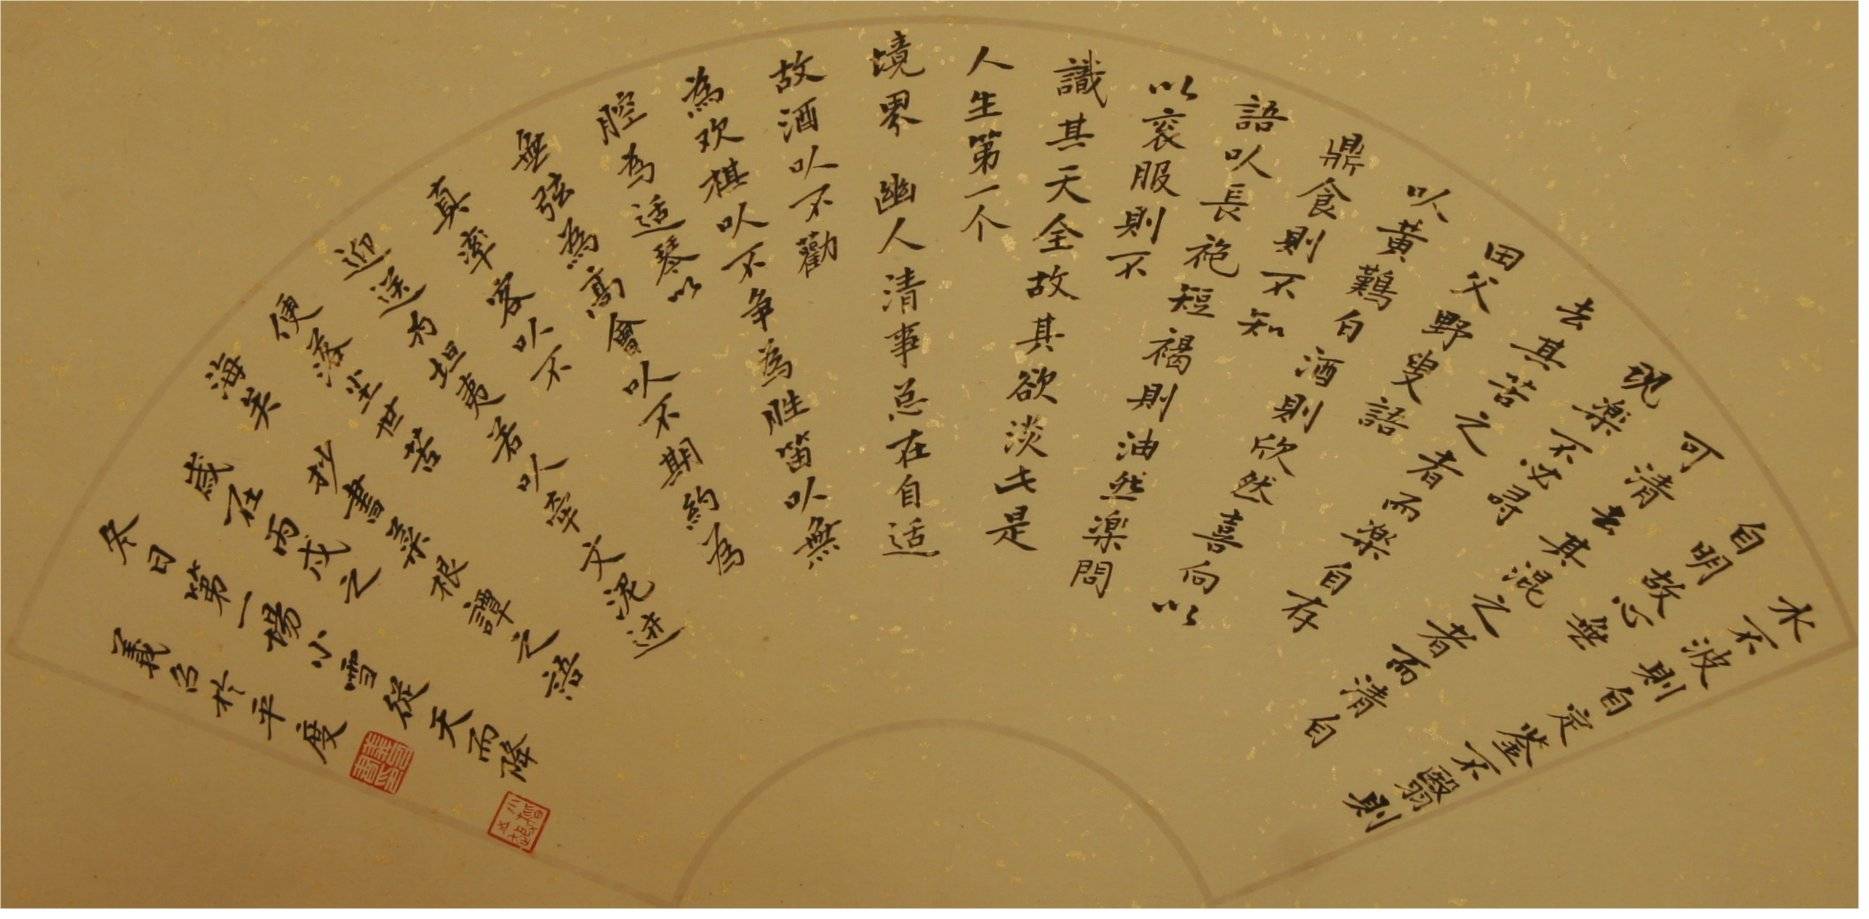 水不波則自定鉴不翳則
自明故心無
可清去其混之者而清自
現楽不必尋
去其苦之者而楽自存
田父野叟語
以黃鷄白酒則欣然喜向以
鼎食則不知
語以長袍短褐則油然楽問
以衮服則不
識其天全故其欲淡此是
人生第一个
境界 幽人清事总在自适
故酒以不勸
為欢棋以不争為胜笛以無
腔為适琴以
無弦為高會以不期約為
真率客以不
迎送为坦夷若以牵文泥迹
便落尘世苦
海矣 抄書菜根譚之語
歲在丙戌之
冬日第一場小雪從天而降
義名於平度